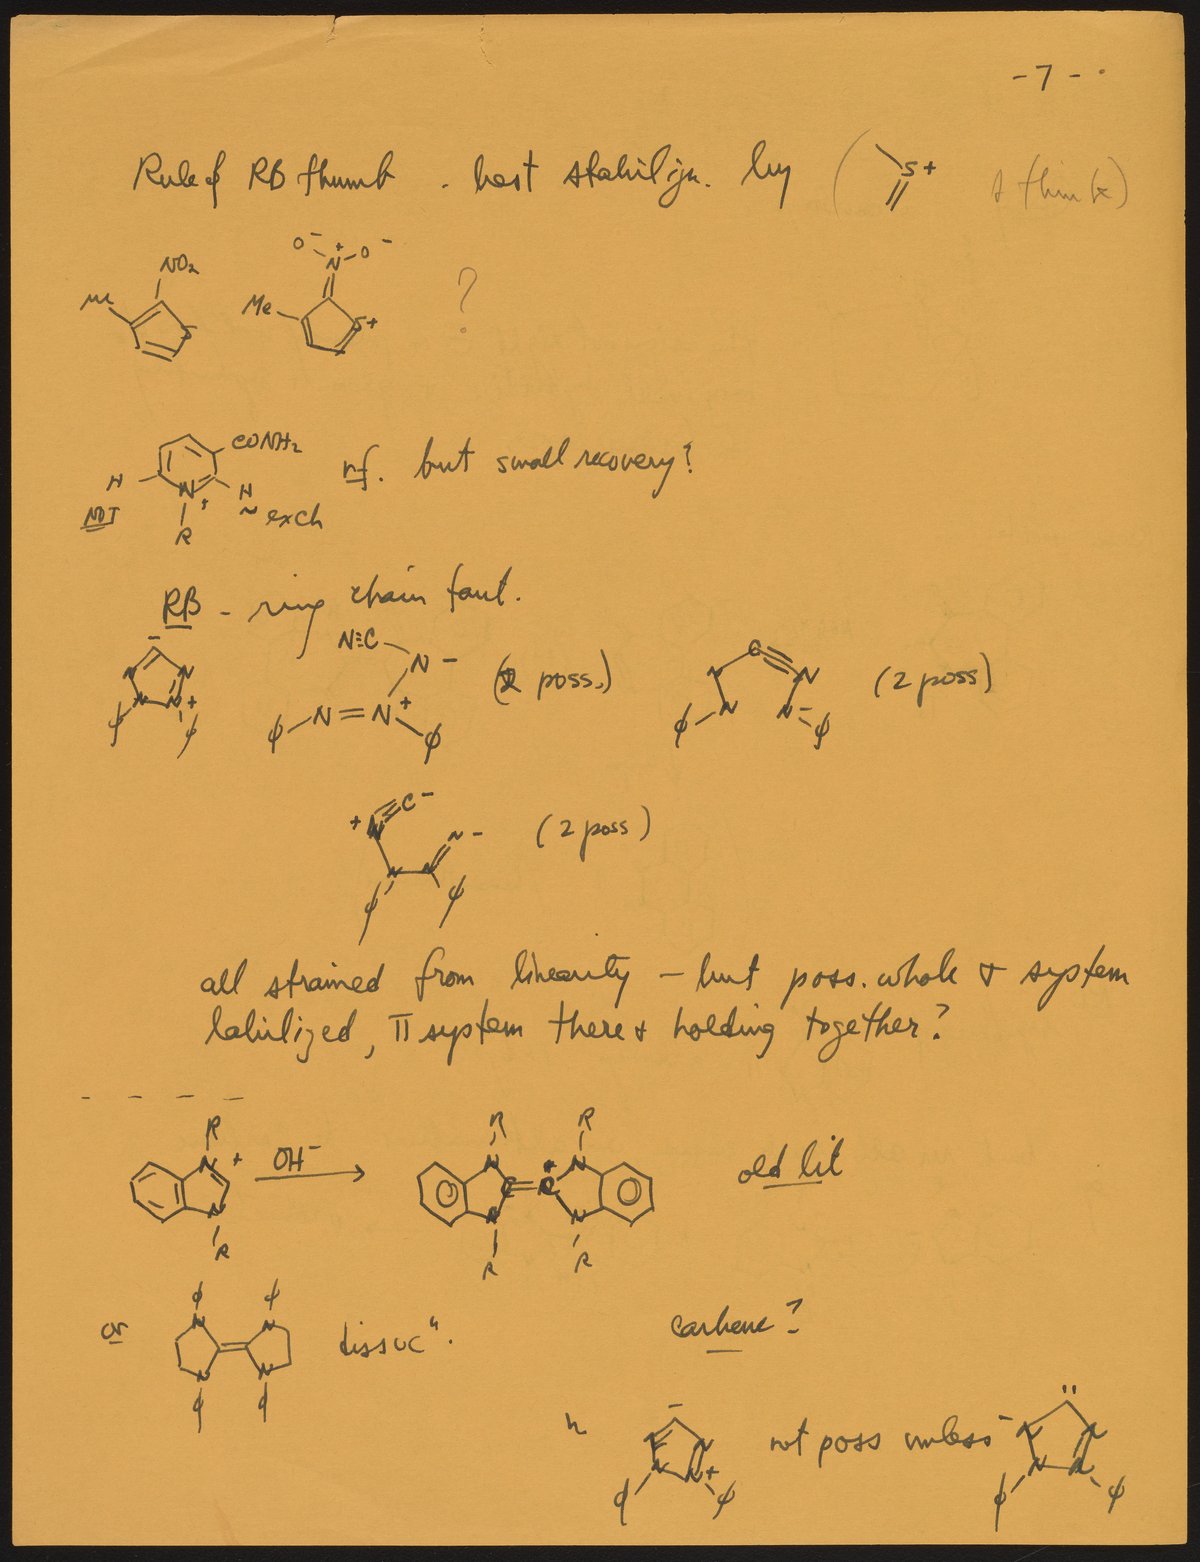 - 7 -
Rule of RB thumb - best stabilizn. by ( S+ I think)
NO2
Me
S
O- N+ O-
Me
S+
?
CONH2
H
NOT
N+
R
H
~ exch
rf. but small recovery?
RB - ring chain taut.
-
N N
N N+
φ φ
N≡C
N -
φ-N=N+
φ
(2 poss.)
C≡N
N
N N-
φ φ
(2 poss)
+N≡C-
N N N-
φ φ
(2 poss)
all strained from linearity - but poss. whole σ system
labilized, π system there & holding together?
- - - -
R
N+
N
R
OH-
R R
N N
C=C
N N
R R
old lit
or
φ φ
N N
N N
φ φ
dissocn.
carbene?
-
N N
N N+
φ φ
not poss unless
..
-N N
N N
φ φ